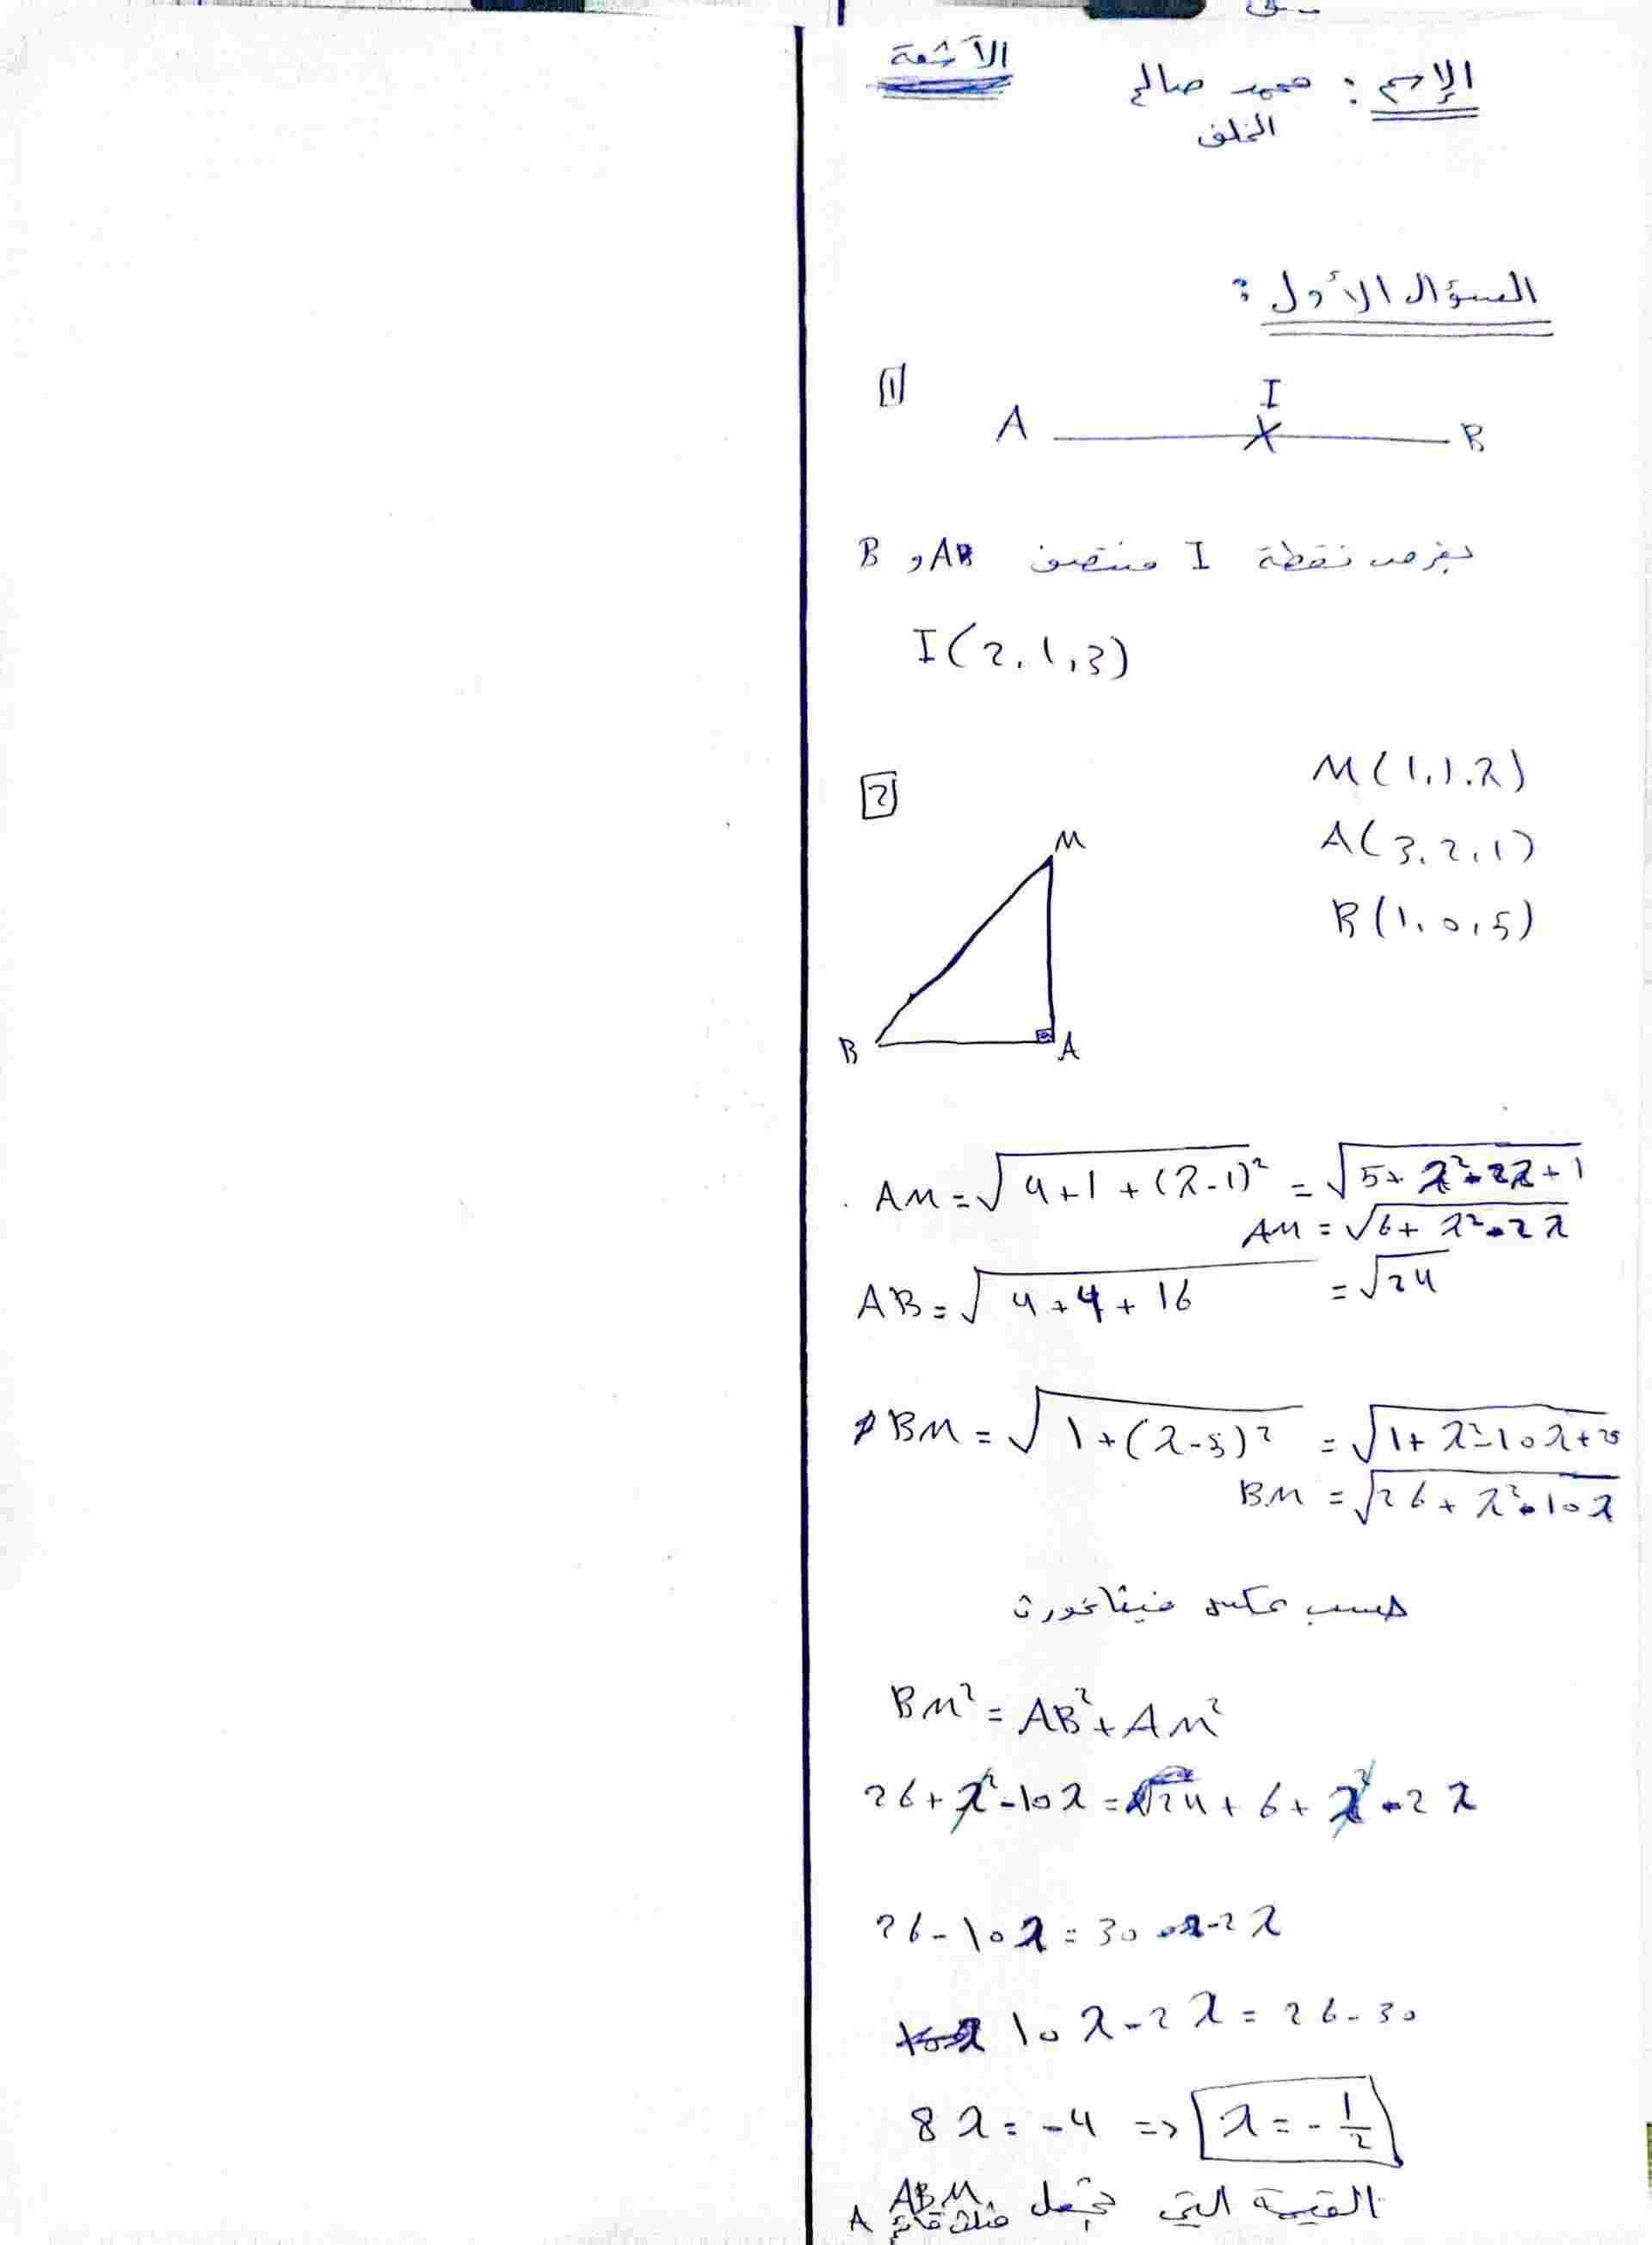 الآشعة
الإسم : محمد صالح
الخلف
السؤال الأول :
1
I
A B
بفرض نقطة I منتصف AB و B
I(2,1,3)
2
M(1,1,λ)
A(3,2,1)
B(1,0,5)
M
B A
AM = √4+1+(λ-1)² = √5+λ²-2λ+1
AM = √6+λ²-2λ
AB = √4+4+16 = √24
BM = √1+(λ-5)² = √1+λ²-10λ+25
BM = √26+λ²-10λ
حسب عكس فيثاغورث
BM² = AB² + AM²
26+λ²-10λ = 24+6+λ²-2λ
26-10λ = 30-2λ
10λ-2λ = 26-30
8λ = -4 => λ = -1/2
القيمة التي تجعل ABM
مثلث قائم A